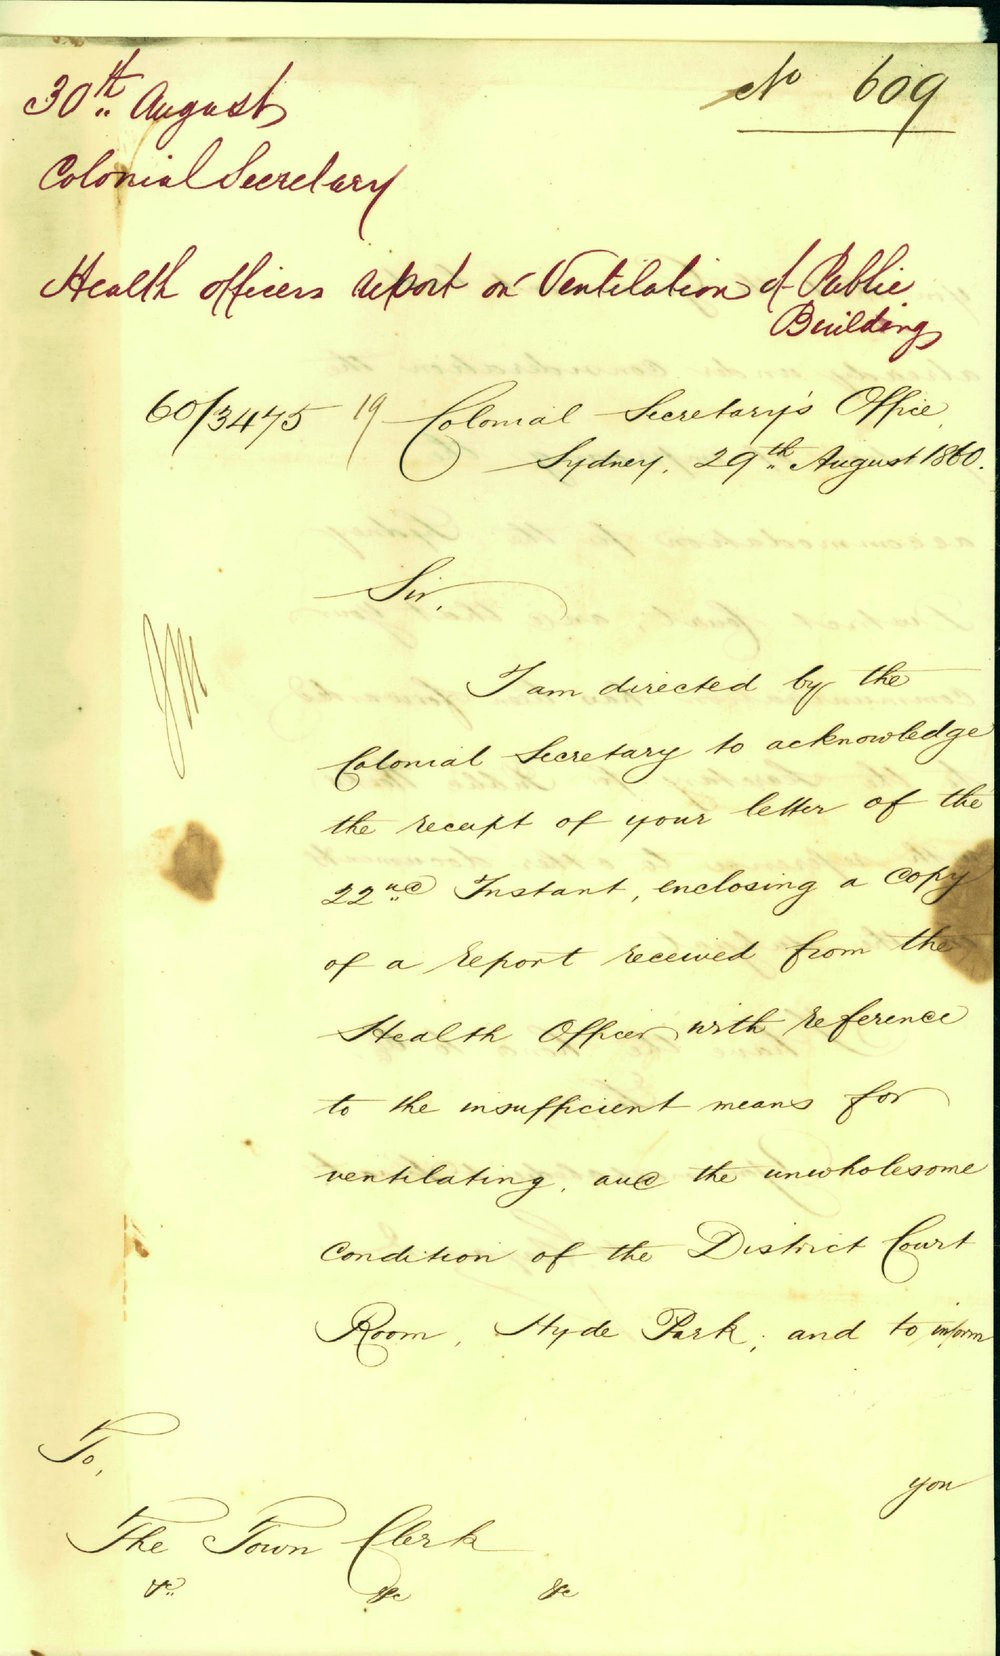 30th August
No 609
Colonial Secretary
Health officers report on Ventilation of Public
Buildings
60/3475 19 Colonial Secretary's Office,
Sydney, 29th August 1860.
Sir,
I am directed by the
Colonial Secretary to acknowledge
the receipt of your letter of the
22nd Instant, enclosing a Copy
of a report received from the
Health Officer with reference
to the insufficient means for
ventilating, and the unwholesome
Condition of the District Court
Room, Hyde Park, and to inform
you
To,
The Town Clerk
&c &c &c